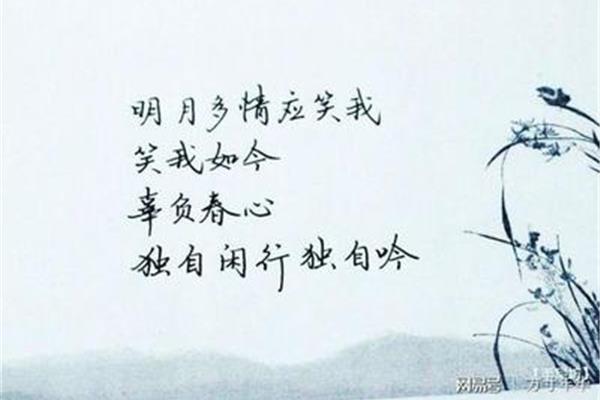 明月多情应笑我
笑我如今
辜负春心
独自闲行独自吟
网易号